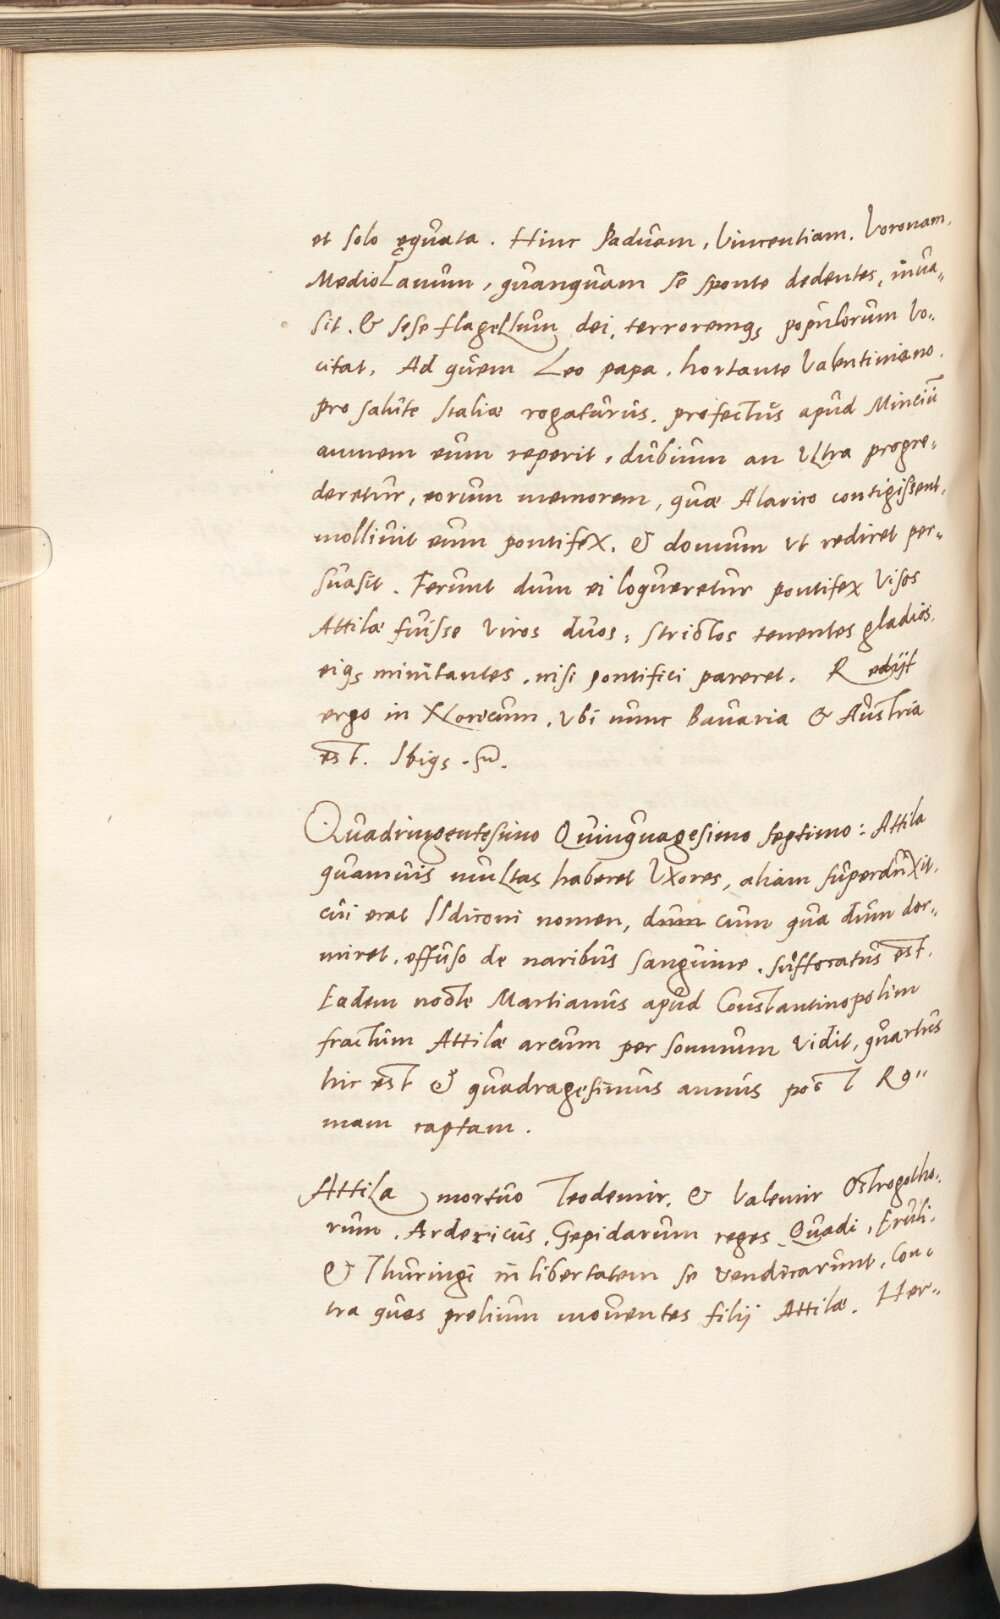 et solo ęquata. Hinc Paduam, Vincentiam, Voronam,
Mediolanum, quanquam se sponte dedentes, inua„
sit. & sese flagellum dei, terroremq; populorum Vo„
citat. Ad quem Leo papa, hortante Valentiniano.
pro salute Italiæ rogaturus. profectus apud Minciū
amnem eum reperit, dubium an Vltra progre„
deretur, eorum memorem, quæ Alarico contigissent,
molliuit eum pontifex. & domum vt rediret per„
suasit. Ferunt dum ei loqueretur pontifex Visos
Attilæ fuisse Viros duos, strictos tenentes gladios,
eiq; minitantes, nisi pontifici pareret. Redijt
ergo in Noricum, Vbi nunc Bauaria & Austria
est. Ibiq;
Quadringentesimo Quinquagesimo septimo: Attila
quamuis multas haberet Vxores, aliam superduxit,
cui erat Ildiconi nomen, dum cum qua dum dor„
miret, effuso de naribus sanguine, suffocatus est.
Eadem nocte Martianus apud Constantinopolim
fractum Attilæ arcum per somnum Vidit, quartus
hic est & quadragesimus annus post Ro„
mam captam.
Attila mortuo Teodemir, & Valemir Ostrogotho„
rum, Ardericus, Gepidarum reges Quadi, Eruli,
& Thuringi in libertatem se vendicarunt, Con„
tra quos prelium mouentes filij Attilæ. Her„